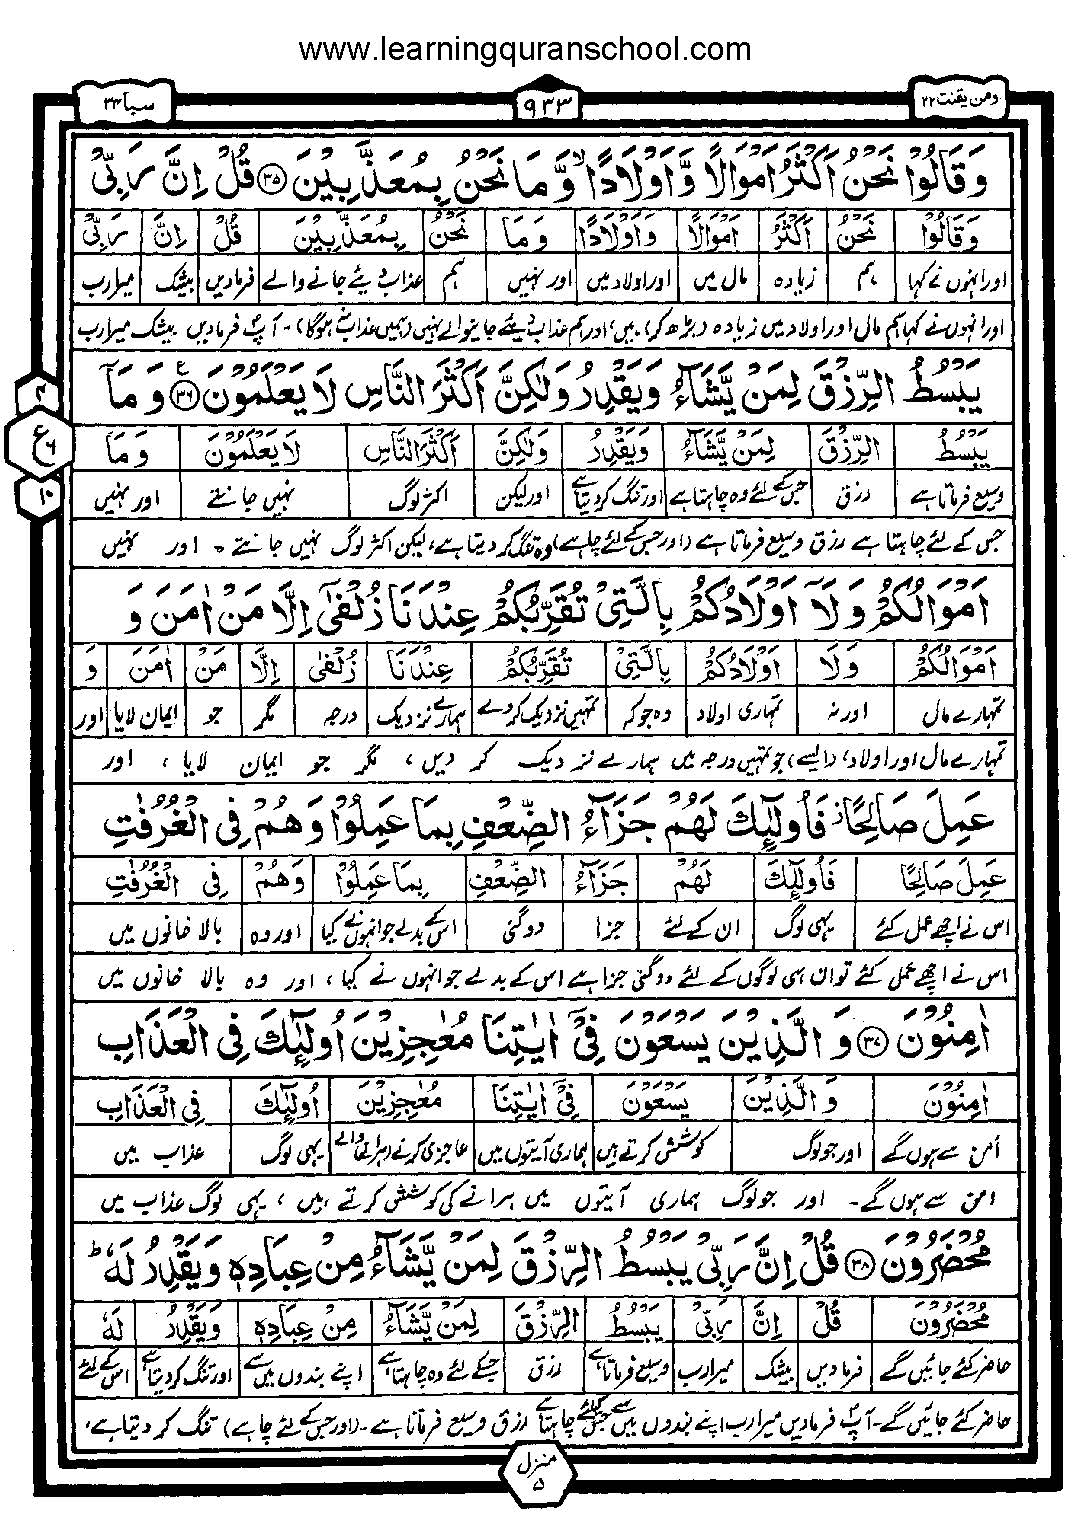 www.learningquranschool.com
ومن یقنت ۲۲
۹۳۳
سبا ۳۴
وَقَالُوْا نَحْنُ اَكْثَرُ اَمْوَالًا وَّاَوْلَادًا ۙ وَّمَا نَحْنُ بِمُعَذَّبِيْنَ ﴿۳۵﴾ قُلْ اِنَّ رَبِّيْ
وَقَالُوْا نَحْنُ اَكْثَرُ اَمْوَالًا وَاَوْلَادًا وَمَا نَحْنُ بِمُعَذَّبِيْنَ قُلْ اِنَّ رَبِّيْ
اور انہوں نے کہا ہم زیادہ مال میں اور اولاد میں اور نہیں ہم عذاب دیئے جانے والے فرمادیں بیشک میرا رب
اور انہوں نے کہا ہم مال اور اولاد میں زیادہ (بڑھ کر) ہیں، اور ہم عذاب دیئے جانیوالے نہیں (ہمیں عذاب نہ ہوگا)۔ آپؐ فرمادیں بیشک میرا رب
يَبْسُطُ الرِّزْقَ لِمَنْ يَّشَآءُ وَيَقْدِرُ وَلٰكِنَّ اَكْثَرَ النَّاسِ لَا يَعْلَمُوْنَ ﴿۳۶﴾ ع وَمَآ
۴
ع ۶
۱۰
يَبْسُطُ الرِّزْقَ لِمَنْ يَّشَآءُ وَيَقْدِرُ وَلٰكِنَّ اَكْثَرَ النَّاسِ لَا يَعْلَمُوْنَ وَمَآ
وسیع فرماتا ہے رزق جس کے لئے وہ چاہتا ہے اور تنگ کر دیتا ہے اور لیکن اکثر لوگ نہیں جانتے اور نہیں
جس کے لئے چاہتا ہے رزق وسیع فرماتا ہے (اور جس کے لئے چاہے) وہ تنگ کر دیتا ہے، لیکن اکثر لوگ نہیں جانتے۔ اور نہیں
اَمْوَالُكُمْ وَلَآ اَوْلَادُكُمْ بِالَّتِيْ تُقَرِّبُكُمْ عِنْدَنَا زُلْفٰٓى اِلَّا مَنْ اٰمَنَ وَ
اَمْوَالُكُمْ وَلَا اَوْلَادُكُمْ بِالَّتِيْ تُقَرِّبُكُمْ عِنْدَنَا زُلْفٰى اِلَّا مَنْ اٰمَنَ وَ
تمہارے مال اور نہ تمہاری اولاد وہ جو کہ تمہیں نزدیک کردے ہمارے نزدیک درجہ مگر جو ایمان لایا اور
تمہارے مال اور اولاد، (ایسے) جو تمہیں درجہ میں ہمارے نزدیک کر دیں، مگر جو ایمان لایا، اور
عَمِلَ صَالِحًا ز فَاُولٰٓئِكَ لَهُمْ جَزَآءُ الضِّعْفِ بِمَا عَمِلُوْا وَهُمْ فِى الْغُرُفٰتِ
عَمِلَ صَالِحًا فَاُولٰٓئِكَ لَهُمْ جَزَآءُ الضِّعْفِ بِمَا عَمِلُوْا وَهُمْ فِى الْغُرُفٰتِ
اس نے اچھے عمل کئے یہی لوگ ان کے لئے جزا دوگنی اس کے بدلے جو انہوں نے کیا اور وہ بالا خانوں میں
اس نے اچھے عمل کئے تو ان ہی لوگوں کے لئے دوگنی جزا ہے اس کے بدلے جو انہوں نے کیا، اور وہ بالا خانوں میں
اٰمِنُوْنَ ﴿۳۷﴾ وَالَّذِيْنَ يَسْعَوْنَ فِيْٓ اٰيٰتِنَا مُعٰجِزِيْنَ اُولٰٓئِكَ فِى الْعَذَابِ
اٰمِنُوْنَ وَالَّذِيْنَ يَسْعَوْنَ فِيْٓ اٰيٰتِنَا مُعٰجِزِيْنَ اُولٰٓئِكَ فِى الْعَذَابِ
امن سے ہوں گے اور جو لوگ کوشش کرتے ہیں ہماری آیتوں میں عاجز کرنے (ہرانے) والے یہی لوگ عذاب میں
امن سے ہوں گے۔ اور جو لوگ ہماری آیتوں میں ہرانے کی کوشش کرتے ہیں، یہی لوگ عذاب میں
مُحْضَرُوْنَ ﴿۳۸﴾ قُلْ اِنَّ رَبِّيْ يَبْسُطُ الرِّزْقَ لِمَنْ يَّشَآءُ مِنْ عِبَادِهٖ وَيَقْدِرُ لَهٗ ؕ
مُحْضَرُوْنَ قُلْ اِنَّ رَبِّيْ يَبْسُطُ الرِّزْقَ لِمَنْ يَّشَآءُ مِنْ عِبَادِهٖ وَيَقْدِرُ لَهٗ
حاضر کئے جائیں گے فرمادیں بیشک میرا رب وسیع فرماتا ہے رزق جس کے لئے وہ چاہتا ہے اپنے بندوں میں سے اور تنگ کر دیتا ہے اس کے لئے
حاضر کئے جائیں گے۔ آپؐ فرمادیں میرا رب اپنے بندوں میں سے جس کیلئے چاہتا ہے رزق وسیع فرماتا ہے۔ (اور جس کے لئے چاہے) تنگ کر دیتا ہے،
منزل ۵